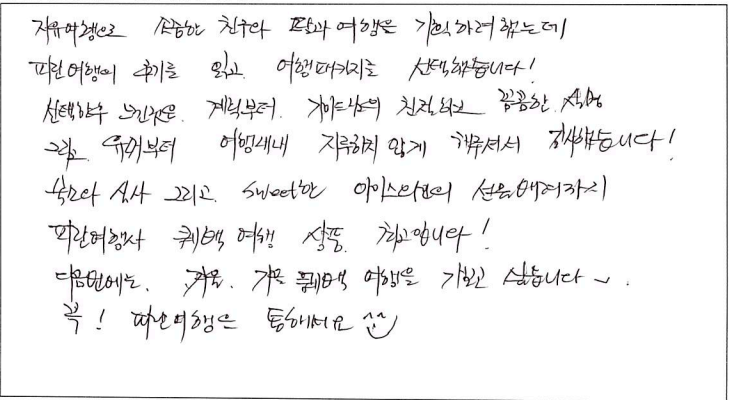 자유여행으로 소중한 친구와 딸과 여행을 기획하려했는데
파란여행의 후기를 읽고 여행패키지를 선택했습니다!
선택한후 느낀것은. 계획부터. 가이드님의 친절하고 꼼꼼한 설명
그리고 유머부터 여행내내 지루하지 않게 해주셔서 감사했습니다!
숙소와 식사 그리고. sweet한 아이스와인의 선물배려까지
파란여행사 퀘백 여행 상품. 최고입니다!
다음번에는. 겨울. 가을 퀘백 여행을 가보고 싶습니다 ~.
꼭! 파란여행을 통해서요 ^^